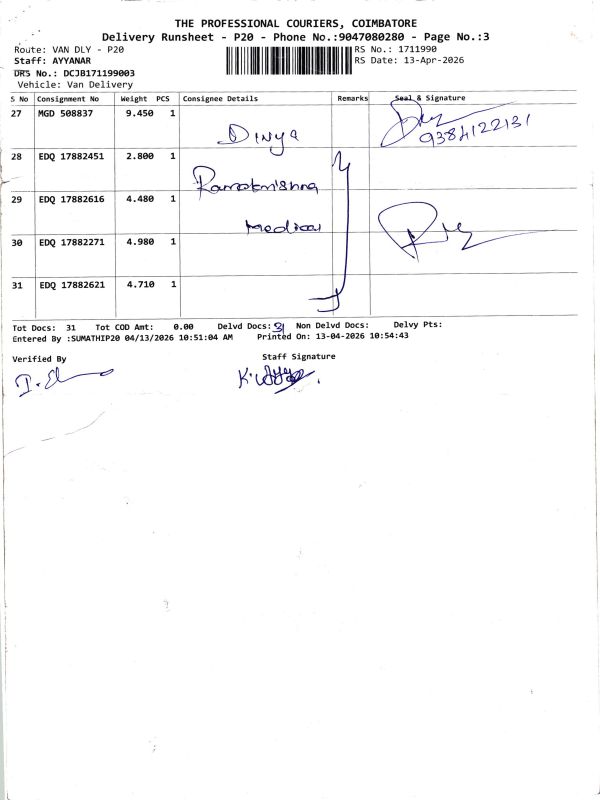 THE PROFESSIONAL COURIERS, COIMBATORE
Delivery Runsheet - P20 - Phone No.:9047080280 - Page No.:3
Route: VAN DLY - P20 RS No.: 1711990
Staff: AYYANAR RS Date: 13-Apr-2026
DRS No.: DCJB171199003
Vehicle: Van Delivery
S No Consignment No Weight PCS Consignee Details Remarks Seal & Signature
27 MGD 508837 9.450 1 Divya 9384122131
28 EDQ 17882451 2.800 1 Ramakrishna
29 EDQ 17882616 4.480 1 Medical
30 EDQ 17882271 4.980 1
31 EDQ 17882621 4.710 1
Tot Docs: 31 Tot COD Amt: 0.00 Delvd Docs: 31 Non Delvd Docs: Delvy Pts:
Entered By :SUMATHIP20 04/13/2026 10:51:04 AM Printed On: 13-04-2026 10:54:43
Verified By Staff Signature